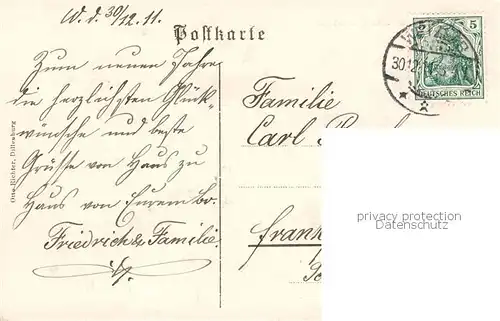 W. d. 30/12. 11.
Postkarte
Zum neuen Jahre
die herzlichsten Glück-
wünsche und beste
Grüsse von Haus zu
Haus von Eurem
Friedrich & Familie.
Otto Richter, Dillenburg
5
DEUTSCHES REICH
30.12
Familie
Carl
privacy protection
Datenschutz